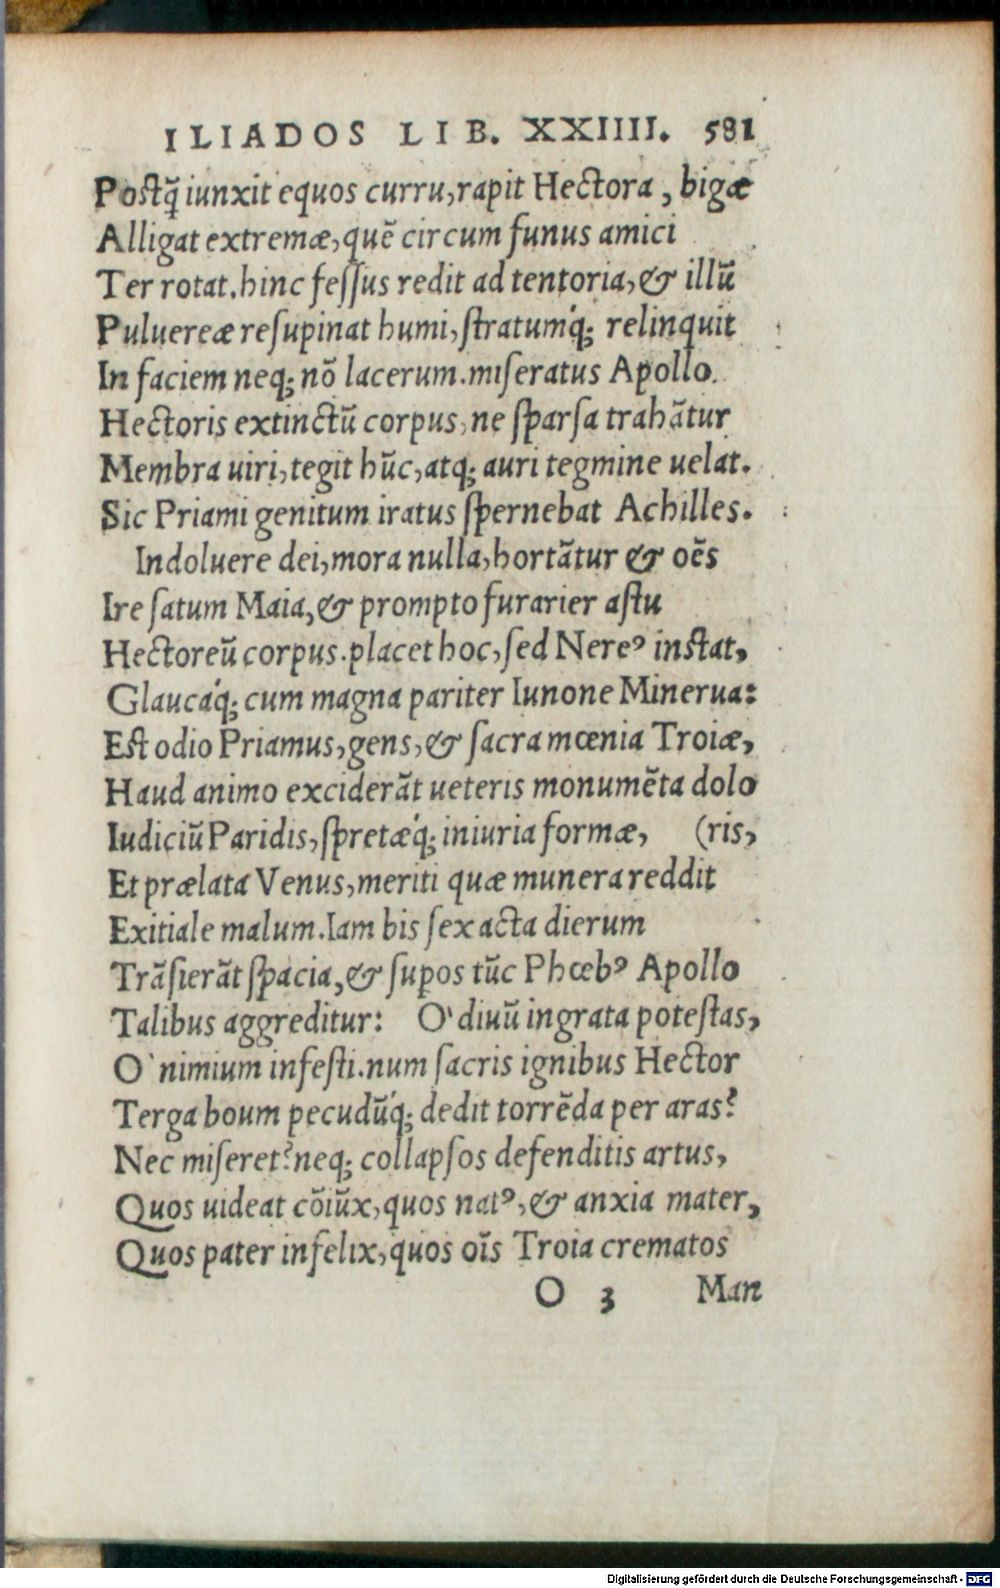 ILIADOS LIB. XXIIII. 581
Postq̃ iunxit equos curru, rapit Hectora, bigæ
Alligat extremæ, quẽ circum funus amici
Ter rotat. hinc fessus redit ad tentoria, & illũ
Puluereæ resupinat humi, stratumq́; relinquit
In faciem neq; nõ lacerum. miseratus Apollo.
Hectoris extinctũ corpus, ne sparsa trahãtur
Membra uiri, tegit hũc, atq; auri tegmine uelat.
Sic Priami genitum iratus spernebat Achilles.
Indoluere dei, mora nulla, hortãtur & oẽs
Ire satum Maia, & prompto furarier astu
Hectoreũ corpus. placet hoc, sed Nereꝰ instat,
Glaucaq́; cum magna pariter Iunone Minerua:
Est odio Priamus, gens, & sacra mœnia Troiæ,
Haud animo exciderãt ueteris monumẽta dolo
Iudiciũ Paridis, spretæq́; iniuria formæ, (ris,
Et prælata Venus, meriti quæ munera reddit
Exitiale malum. Iam bis sex acta dierum
Trãsierãt spacia, & supos tũc Phœbꝰ Apollo
Talibus aggreditur: O' diuũ ingrata potestas,
O' nimium infesti. num sacris ignibus Hector
Terga boum pecudũq́; dedit torrẽda per aras?
Nec miseret? neq; collapsos defenditis artus,
Quos uideat cõiũx, quos natꝰ, & anxia mater,
Quos pater infelix, quos oĩs Troia crematos
O 3 Man
Digitalisierung gefördert durch die Deutsche Forschungsgemeinschaft - DFG